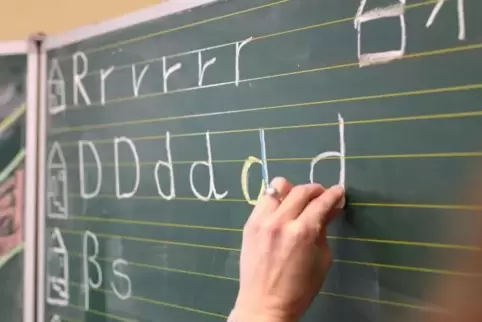 R r r r r r
D D d d d d
ß s